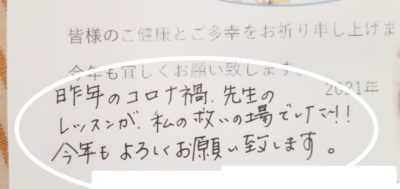 皆様のご健康とご多幸をお祈り申し上げま
今年も宜しくお願い致します。
2021年
昨年のコロナ禍、先生の
レッスンが、私の救いの場でした〜!!
今年もよろしくお願い致します。